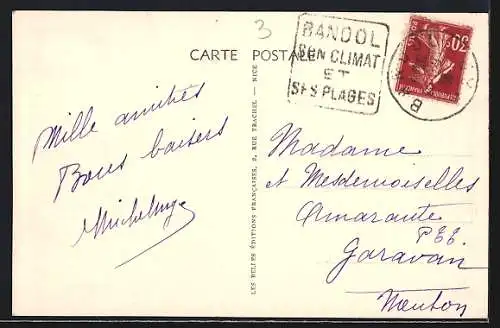 3
CARTE POSTALE
BANDOL
SON CLIMAT
ET
SES PLAGES
30c
Mille amitiés
Bons baisers
LES BELLES ÉDITIONS FRANÇAISES, 2, RUE TRACHEL - NICE
Madame
et Mesdemoiselles
Amarante
Garavan
Menton